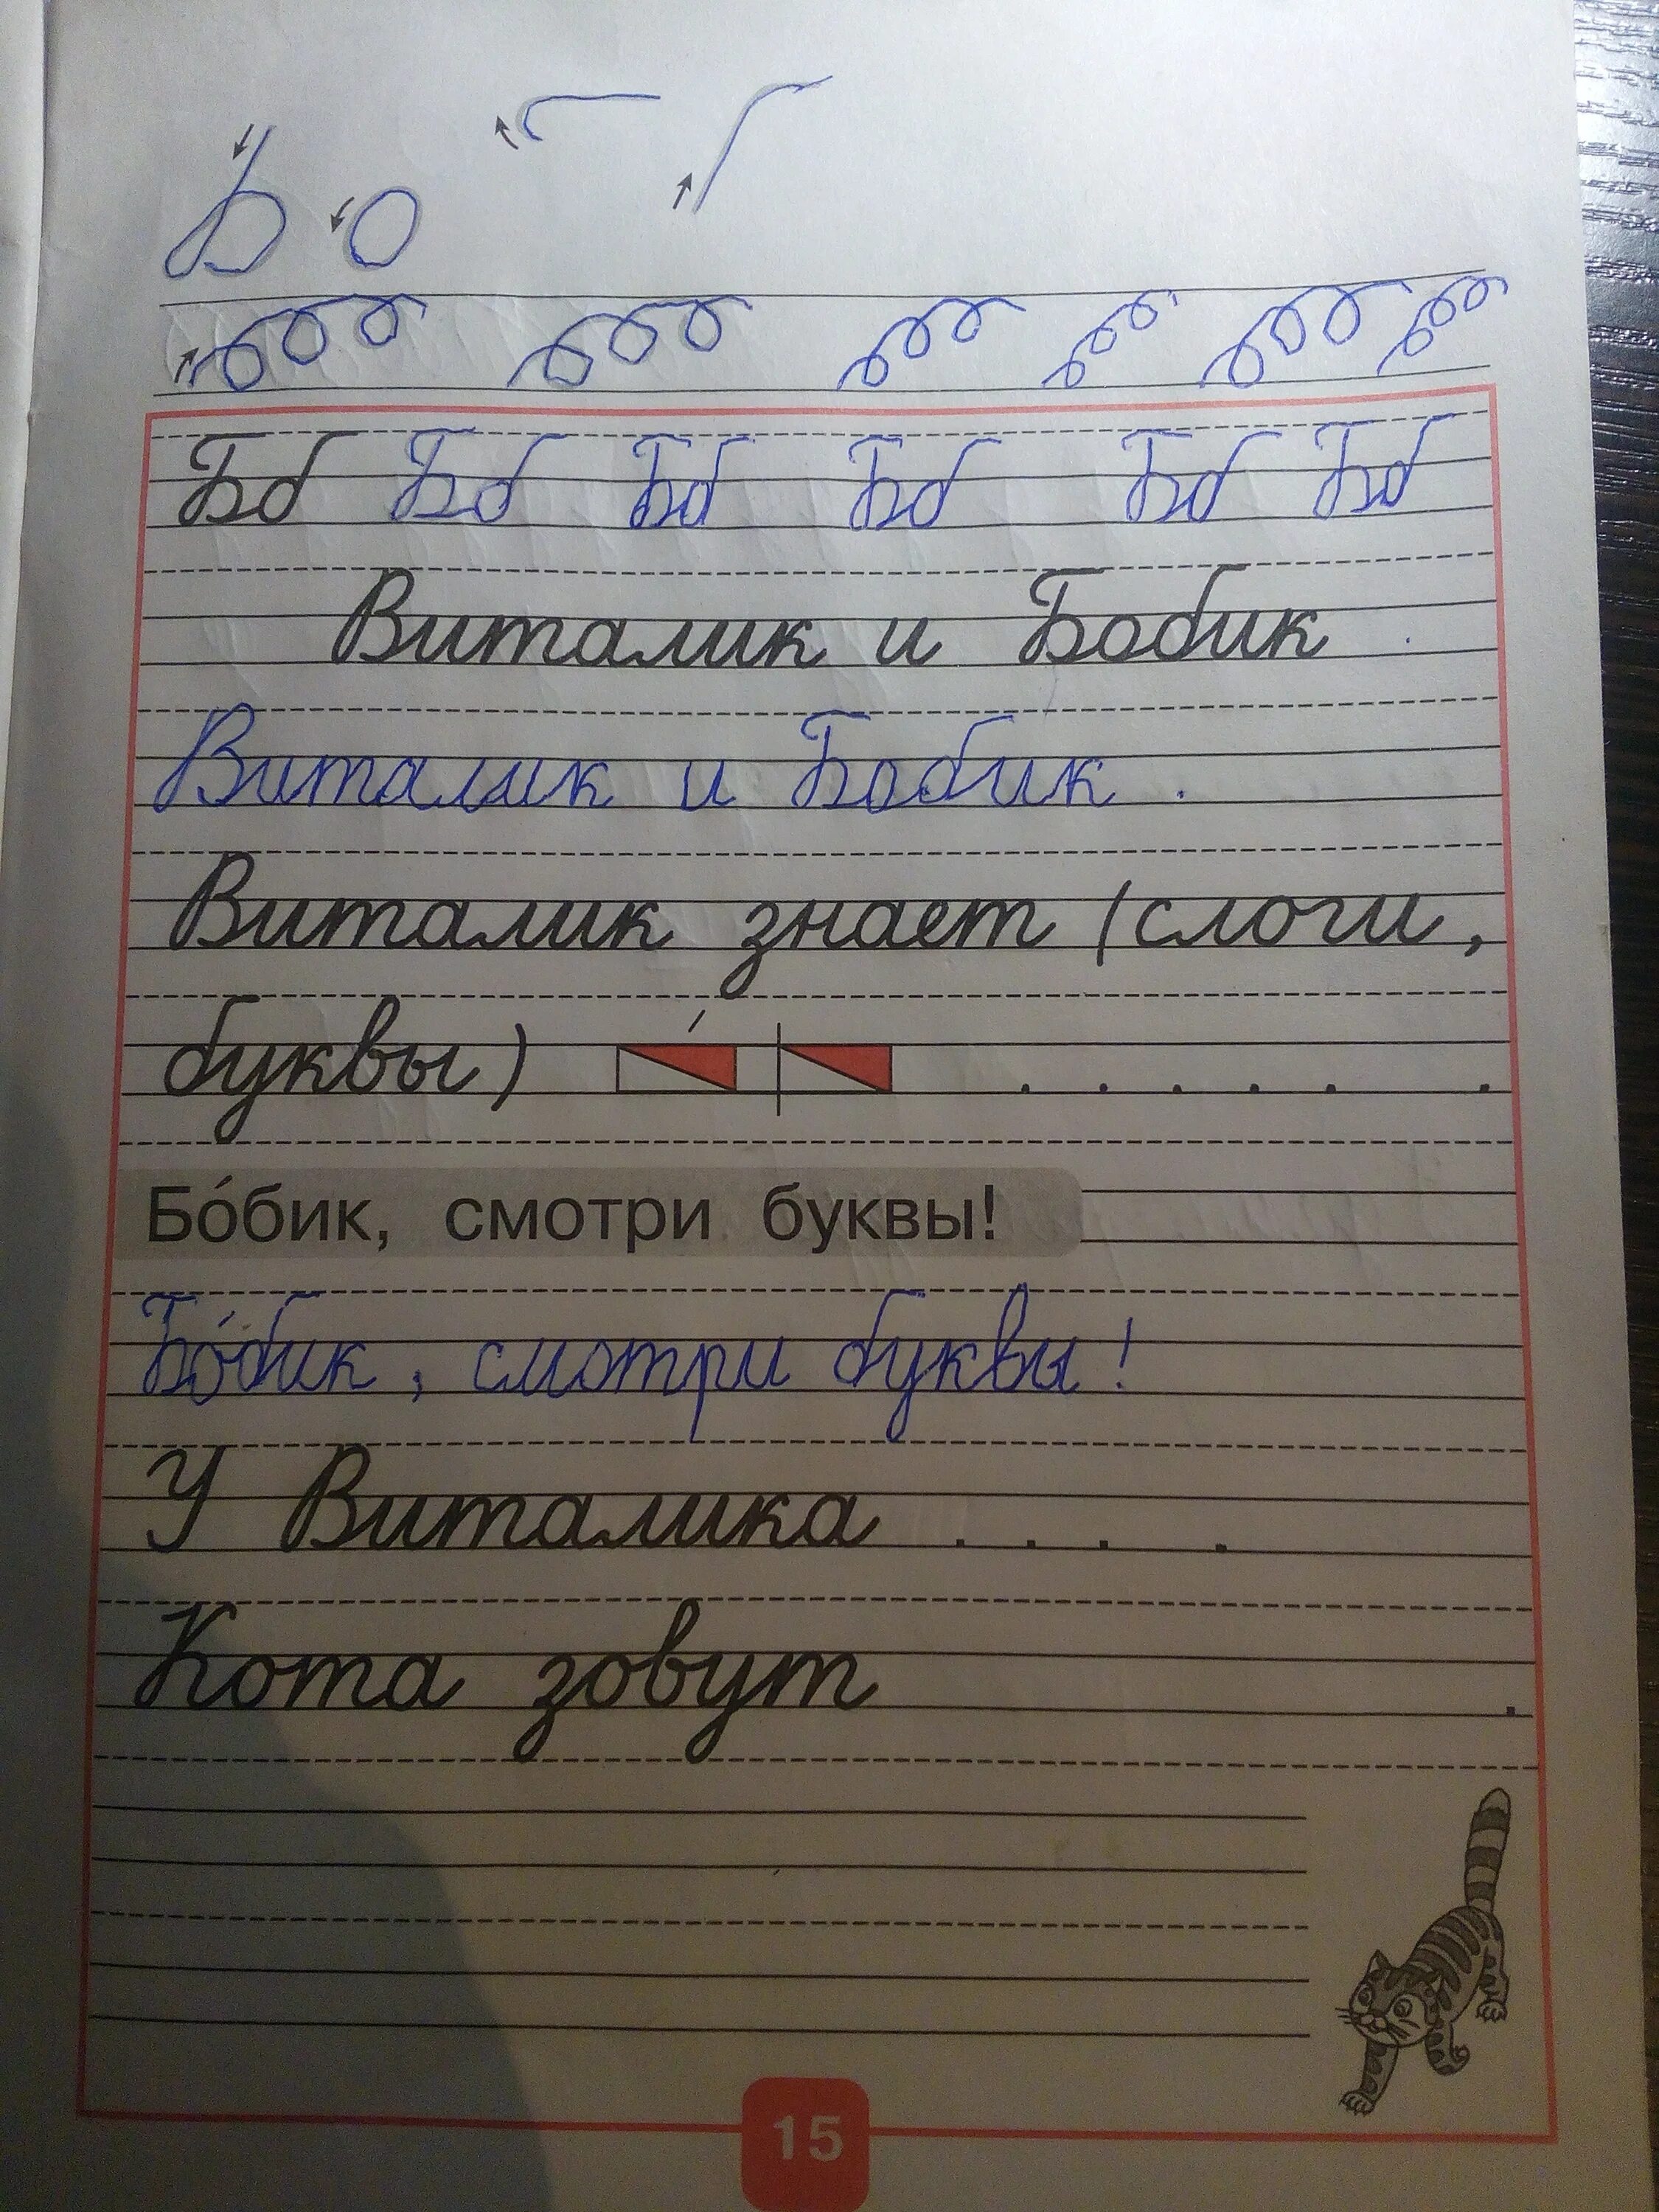 Бб Бб Бб Бб Бб Бб
Виталик и Бобик .
Виталик и Бобик .
Виталик знает (слоги,
буквы) . . . . . .
Бо́бик, смотри буквы!
Бо́бик, смотри буквы!
У Виталика . . . .
Кота зовут .
15